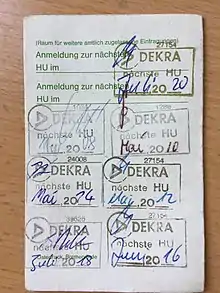 (Raum für weitere amtlich zugelassene Eintragungen)
27154
Anmeldung zur nächsten
HU im
DEKRA
nächste HU
Juli 20 20
Anmeldung zur nächsten
HU im
DEKRA
nächste HU
20 08
DEKRA
nächste HU
Mai 20 10
24008
DEKRA
nächste HU
Mai 20 14
27154
DEKRA
nächste HU
Mai 20 12
DEKRA
nächste HU
Juli 20 18
27154
DEKRA
nächste HU
Juni 20 16